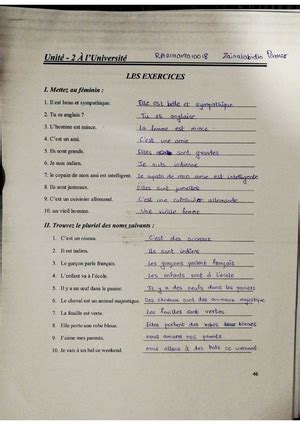 Unité - 2 À l'Université RA2111019010018 Zainalabidin
LES EXERCICES
I. Mettez au féminin :
1. Il est beau et sympathique. Elle est belle et sympathique
2. Tu es anglais ? Tu es anglaise
3. L'homme est mince. La femme est mince.
4. C'est un ami. C'est une amie
5. Ils sont grands. Elles sont grandes
6. Je suis indien. Je suis indienne
7. le copain de mon ami est intelligent. la copaine de mon amie est intelligente
8. Ils sont jumeaux. Elles sont jumelles
9. C'est un cuisinier allemand. C'est une allemande
10. un vieil homme. Une vieille femme
II. Trouvez le pluriel des noms suivants :
1. C'est un oiseau. C'est des oiseaux
2. Il est indien. Ils sont indiens
3. Le garçon parle français. Les garçons parlent français
4. L'enfant va à l'école. Les enfants vont à l'école
5. Il y a un œuf dans le panier. Il y a des oeufs dans les paniers
6. Le cheval est un animal majestueux. Des chevaux sont des animaux
7. La feuille est verte. les feuilles sont vertes
8. Elle porte une robe bleue. Elles portent des robes bleues
9. J'aime mes parents. nous aimons nos parents
10. Je vais à un bal ce weekend. nous allons à des bals ce weekend
46